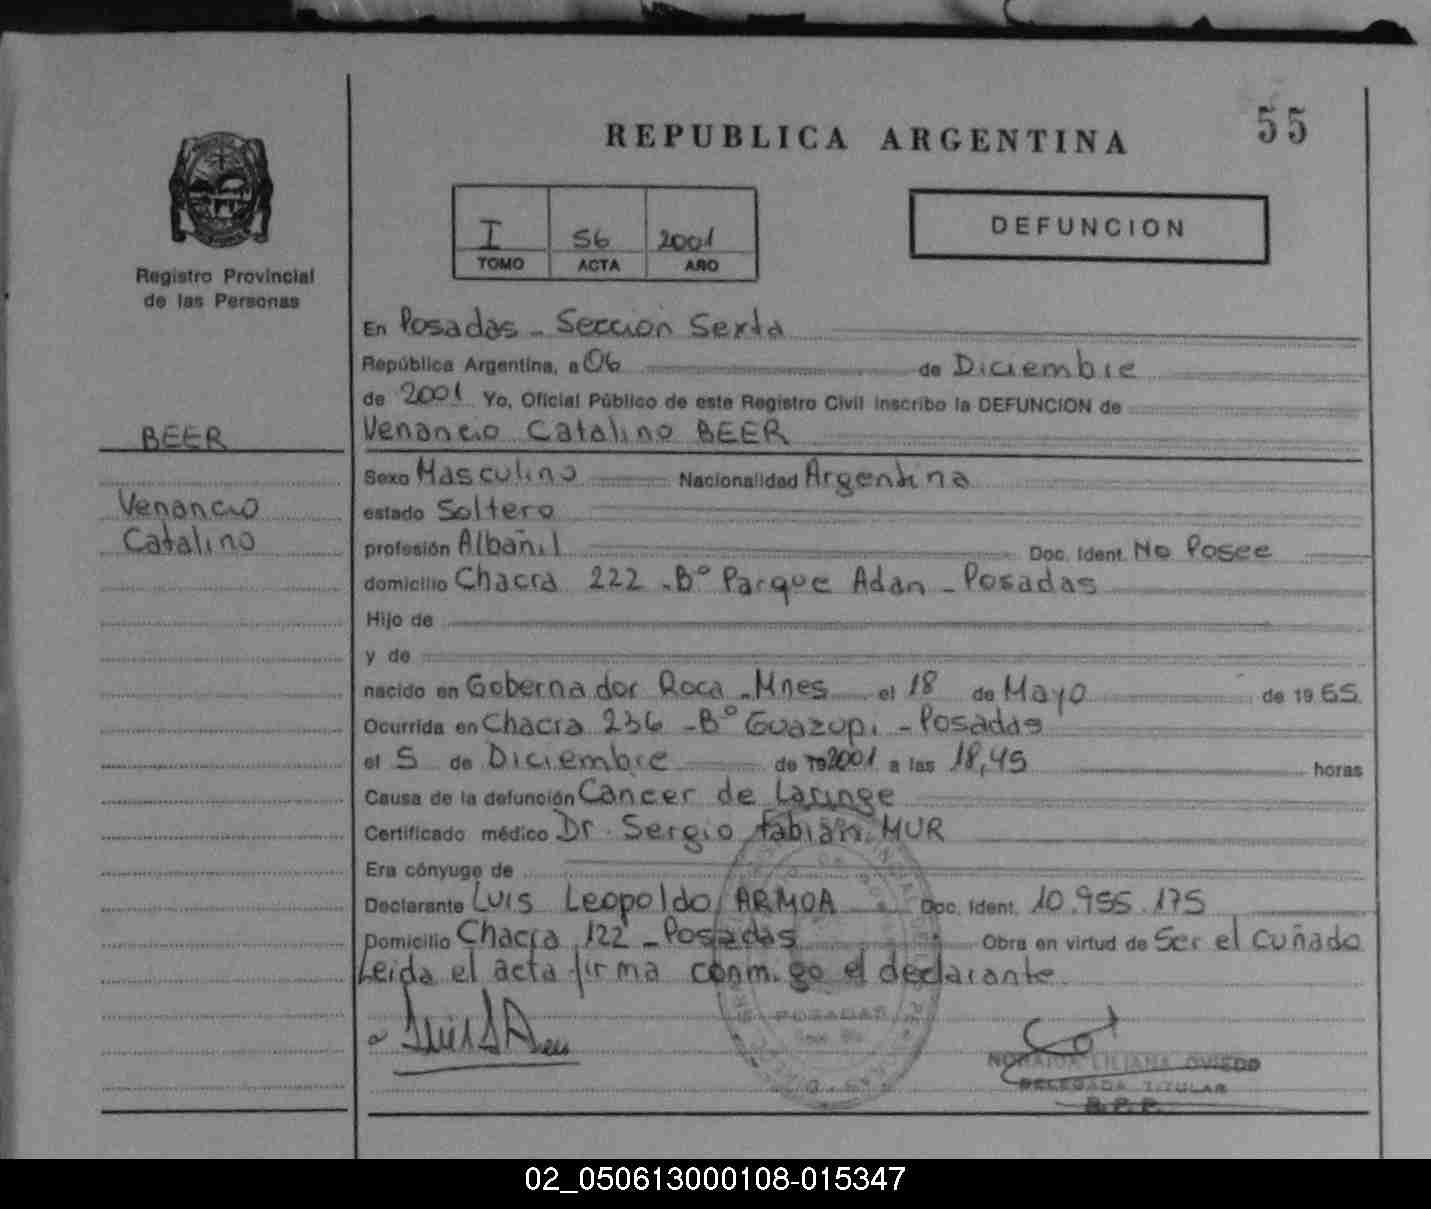 55
REPUBLICA ARGENTINA
I 56 2001
TOMO ACTA AÑO
DEFUNCION
Registro Provincial
de las Personas
BEER
Venancio
Catalino
En Posadas - Sección Sexta
República Argentina, a 06 de Diciembre
de 2001 Yo, Oficial Público de este Registro Civil inscribo la DEFUNCION de
Venancio Catalino BEER
Sexo Masculino Nacionalidad Argentina
estado Soltero
profesión Albañil Doc. Ident. No Posee
domicilio Chacra 222 - Bº Parque Adan - Posadas
Hijo de
y de
nacido en Gobernador Roca - Mnes el 18 de Mayo de 1965.
Ocurrida en Chacra 236 - Bº Guazupi - Posadas
el 5 de Diciembre de 192001 a las 18,45 horas
Causa de la defunción Cancer de Laringe
Certificado médico Dr. Sergio Fabián MUR
Era cónyuge de
Declarante Luis Leopoldo ARMOA Doc. Ident. 10.955.175
Domicilio Chacra 122 - Posadas Obra en virtud de Ser el cuñado
Leida el acta firma conmigo el declarante.
POSADAS
NORAIDA LILIANA OVIEDO
DELEGADA TITULAR
R.P.P.
02_050613000108-015347